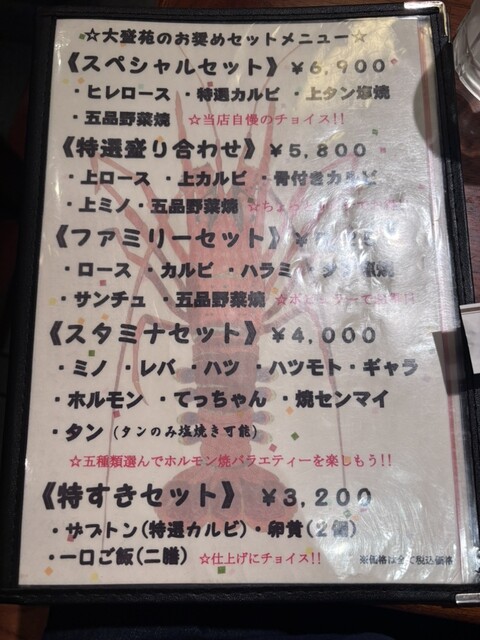 ☆大盛苑のお奨めセットメニュー☆
《スペシャルセット》 ￥6,900
・ヒレロース ・特選カルビ ・上タン塩焼
・五品野菜焼 ☆当店自慢のチョイス!!
《特選盛り合わせ》 ￥5,800
・上ロース ・上カルビ ・骨付きカルビ
・上ミノ ・五品野菜焼
《ファミリーセット》
・ロース ・カルビ ・ハラミ
・サンチュ ・五品野菜焼
《スタミナセット》 ￥4,000
・ミノ ・レバ ・ハツ ・ハツモト ・ギャラ
・ホルモン ・てっちゃん ・焼センマイ
・タン (タンのみ塩焼き可能)
☆五種類選んでホルモン焼バラエティーを楽しもう!!
《特すきセット》 ￥3,200
・ザブトン(特選カルビ)・卵黄(2個)
・一口ご飯(二膳) ☆仕上げにチョイス!!
※価格は全て税込価格